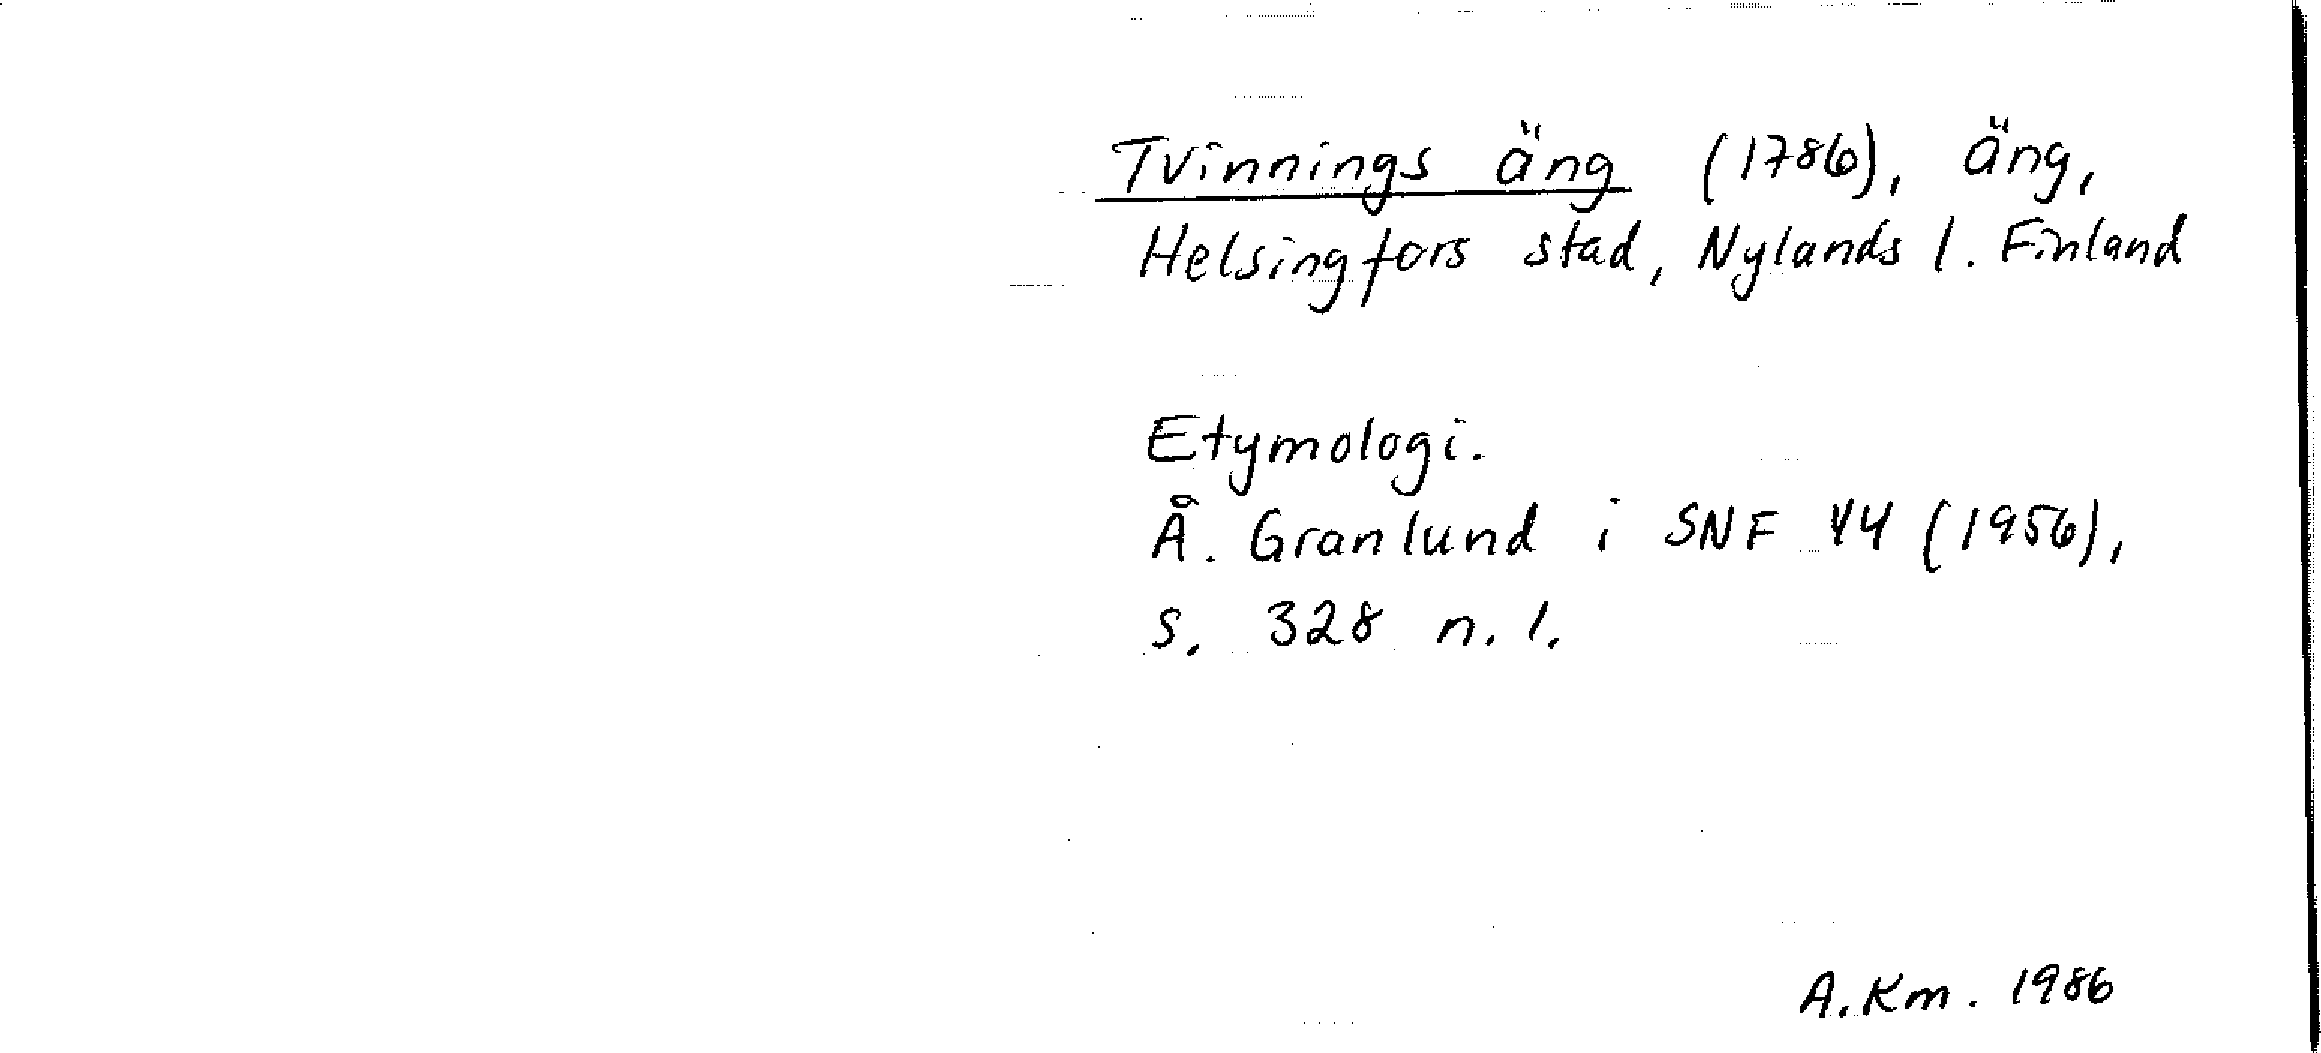 Tvinnings äng (1786), äng,
Helsingfors stad, Nylands l. Finland
Etymologi.
Å. Granlund i SNF 44 (1956),
s. 328 n. 1.
A. Km. 1986